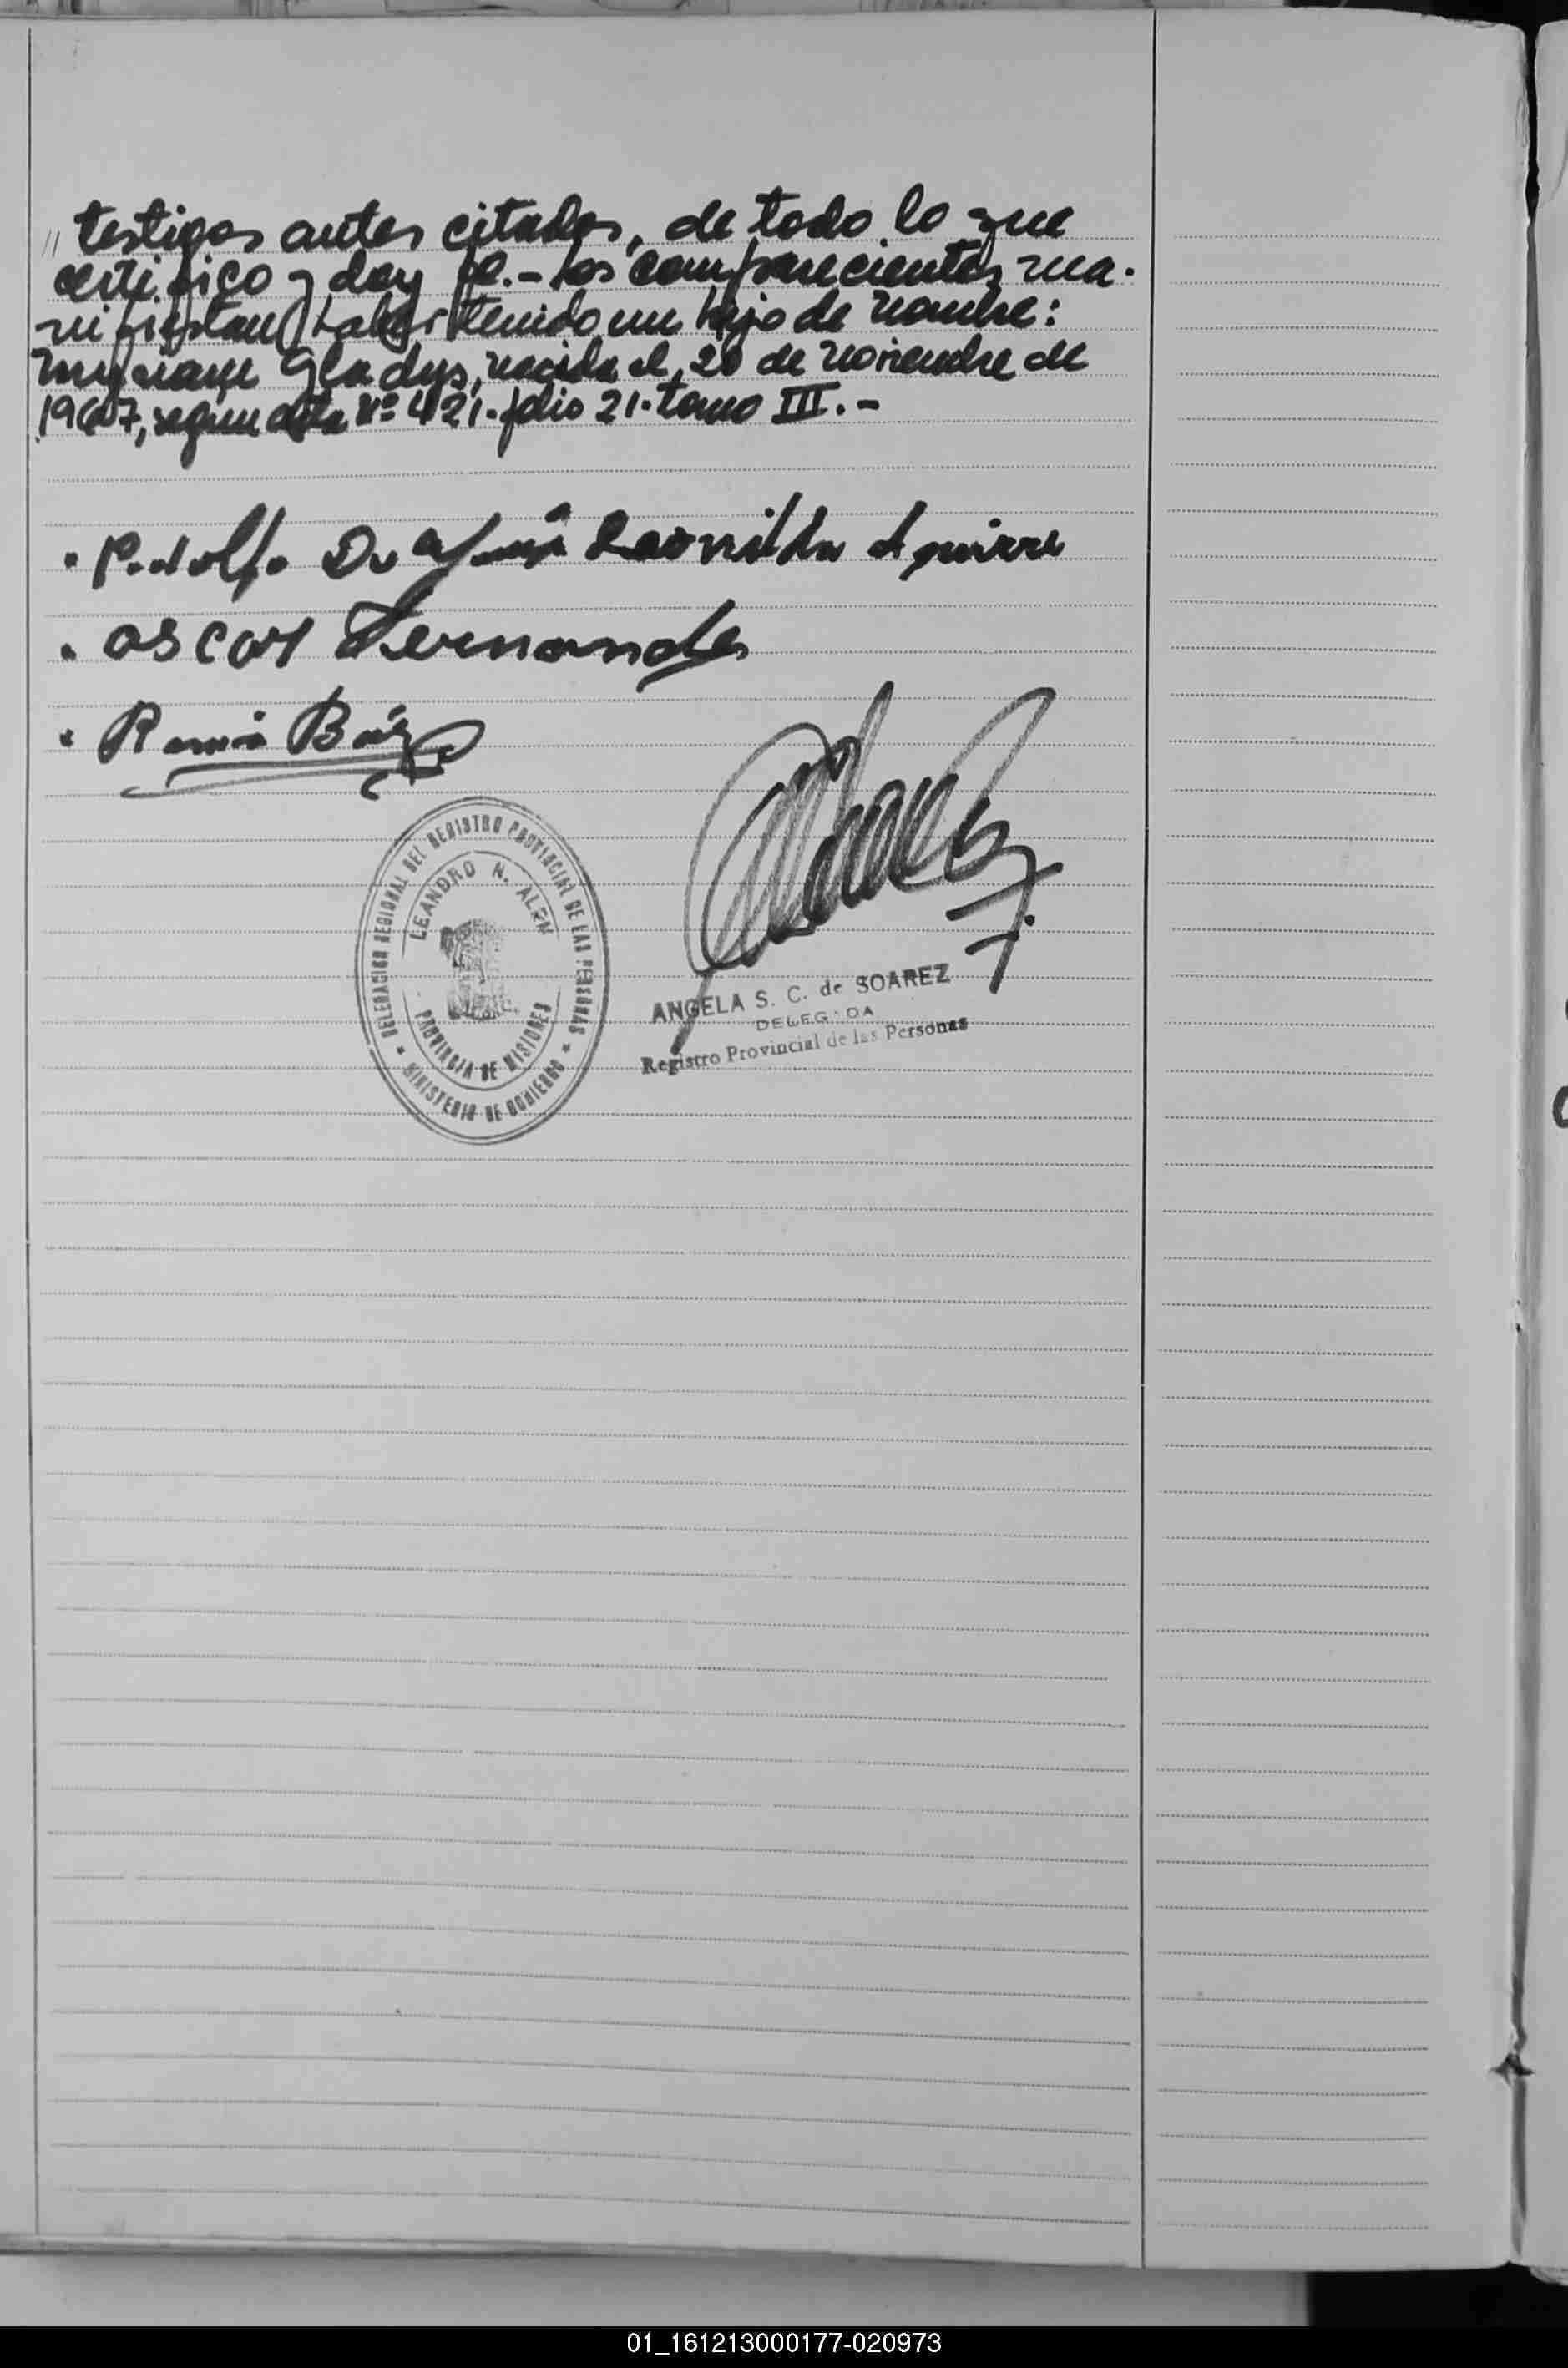 " testigos antes citados, de todo lo que
certifico y doy fe.- Los comparecientes ma-
nifiestan haber tenido un hijo de nombre:
Myriam Gladys, nacida el, 20 de noviembre de
1967, segun acta Nº 421. folio 21. tomo III.-
. Rodolfo Leonilda Aguirre
. Oscar Fernandes
. Ramón Báez
DELEGACION REGIONAL DEL REGISTRO PROVINCIAL DE LAS PERSONAS
LEANDRO N. ALEM
PROVINCIA DE MISIONES
* MINISTERIO DE GOBIERNO *
ANGELA S. C. de SOAREZ
DELEGADA
Registro Provincial de las Personas
01_161213000177-020973